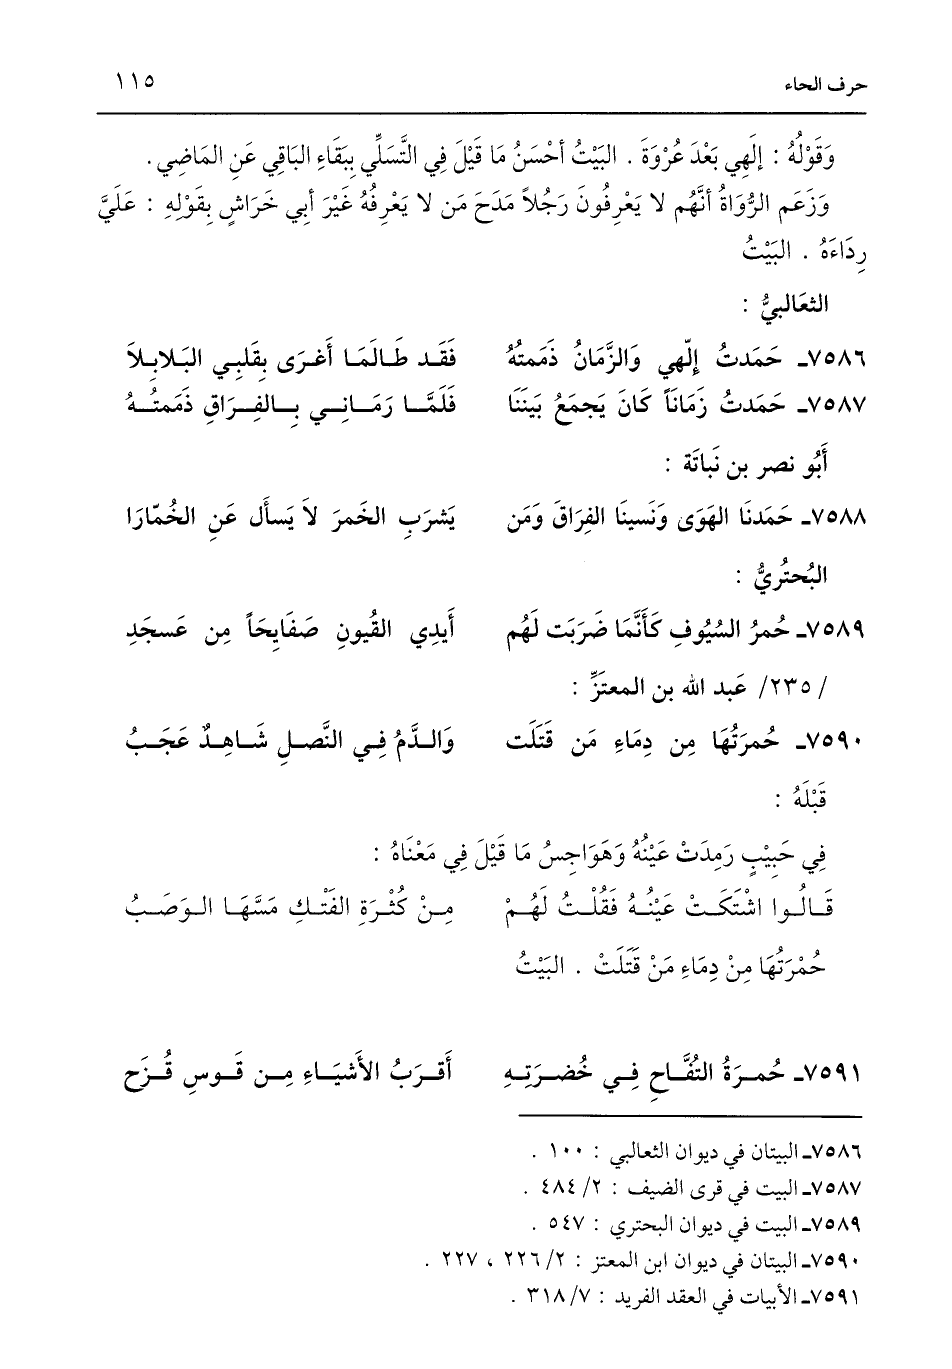 حرف الحاء ١١٥
وَقَوْلُهُ : إلَهِي بَعْدَ عُرْوَةَ . البَيْتُ أحْسَنُ مَا قَيْلَ فِي التَّسَلِّي بِبَقَاءِ البَاقِي عَنِ المَاضِي .
وَزَعَم الرُّوَاةُ أنَّهُم لا يَعْرِفُونَ رَجُلاً مَدَحَ مَن لا يَعْرِفُهُ غَيْرَ أبي خَرَاشٍ بِقَوْلِهِ : عَلَيَّ
رِدَاءَهُ . البَيْتُ
الثعَالبيُّ :
٧٥٨٦ـ حَمَدتُ إلّهي وَالزَّمَانُ ذَممتُهُ فَقَد طَالَمَا أَغرَى بِقَلبِي البَلابِلاَ
٧٥٨٧ـ حَمَدتُ زَمَاناً كَانَ يَجمَعُ بَينَنَا فَلَمَّا رَمَانِي بِالفِرَاقِ ذَممتُهُ
أَبُو نصر بن نَباتَة :
٧٥٨٨ـ حَمَدنَا الهَوَى وَنَسينَا الفِرَاقَ وَمَن يَشرَبِ الخَمرَ لاَ يَسأَل عَنِ الخُمّارَا
البُحتُريُّ :
٧٥٨٩ـ حُمرُ السُيُوفِ كَأَنَّمَا ضَرَبَت لَهُم أَيدِي القُيونِ صَفَايِحَاً مِن عَسجَدِ
/ ٢٣٥/ عَبد الله بن المعتَزِّ :
٧٥٩٠ـ حُمرَتُهَا مِن دِمَاءِ مَن قَتَلَت وَالدَّمُ فِي النَّصلِ شَاهِدٌ عَجَبُ
قَبْلَهُ :
فِي حَبِيْبٍ رَمِدَتْ عَيْنُهُ وَهَوَاجِسُ مَا قَيْلَ فِي مَعْنَاهُ :
قَالُوا اشْتَكَتْ عَيْنُهُ فَقُلْتُ لَهُمْ مِنْ كُثْرَةِ الفَتْكِ مَسَّهَا الوَصَبُ
حُمْرَتُهَا مِنْ دِمَاءِ مَنْ قَتَلَتْ . البَيْتُ
٧٥٩١ـ حُمرَةُ التُفَّاحِ فِي خُضرَتِهِ أَقرَبُ الأَشيَاءِ مِن قَوسِ قُزَح
٧٥٨٦ـ البيتان في ديوان الثعالبي : ١٠٠ .
٧٥٨٧ـ البيت في قرى الضيف : ٢/ ٤٨٤ .
٧٥٨٩ـ البيت في ديوان البحتري : ٥٤٧ .
٧٥٩٠ـ البيتان في ديوان ابن المعتز : ٢/ ٢٢٦ ، ٢٢٧ .
٧٥٩١ـ الأبيات في العقد الفريد : ٧/ ٣١٨ .